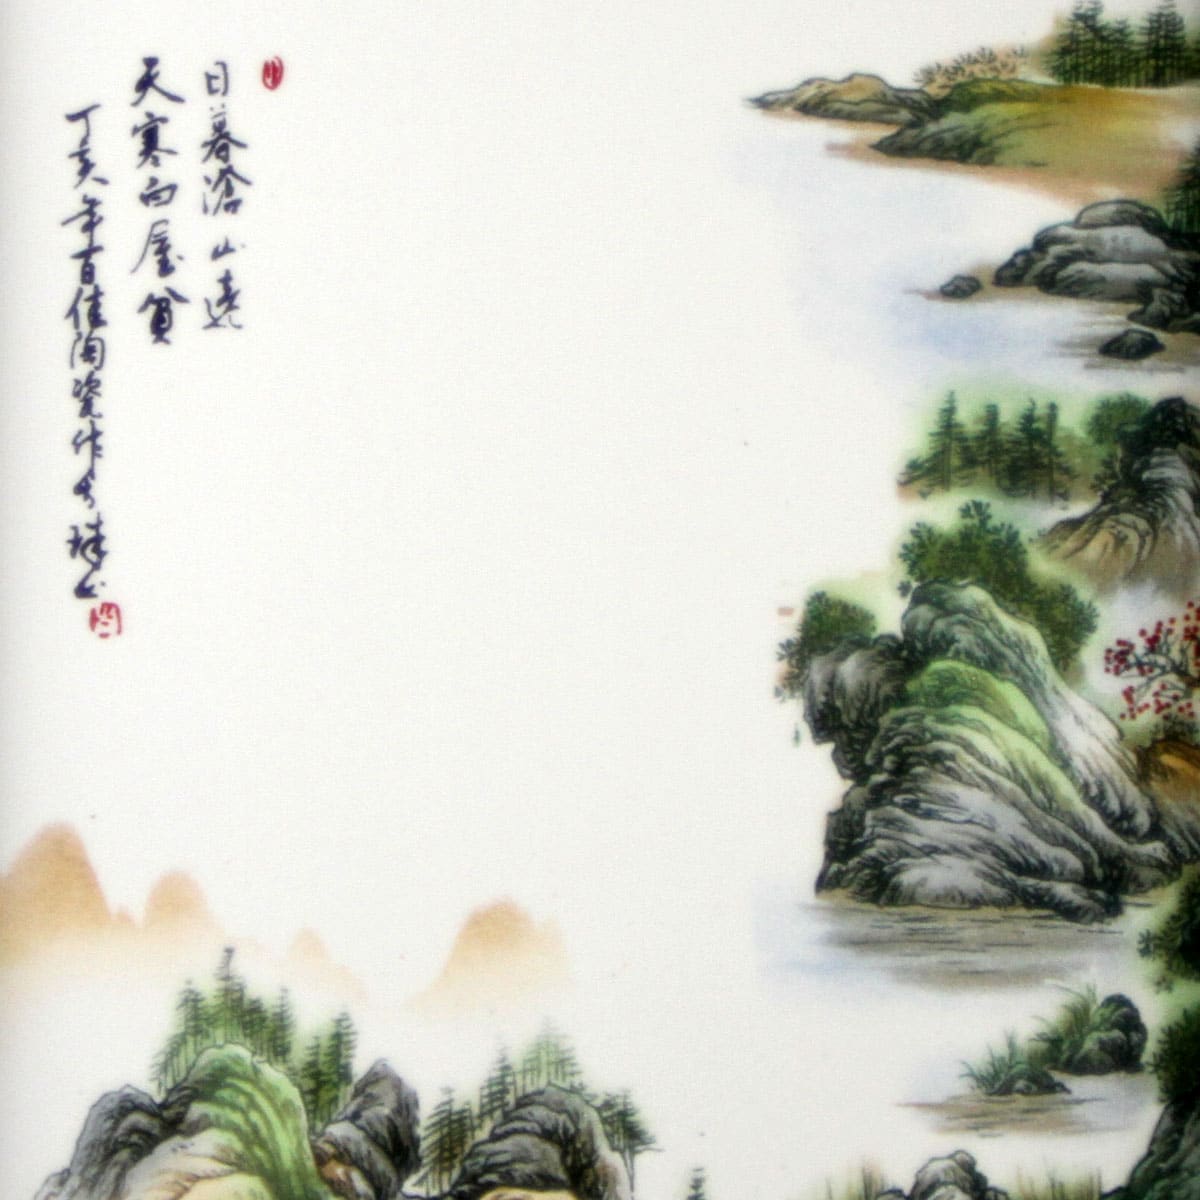 日暮滄山遠
天寒白屋貧
丁亥年百佳陶瓷作